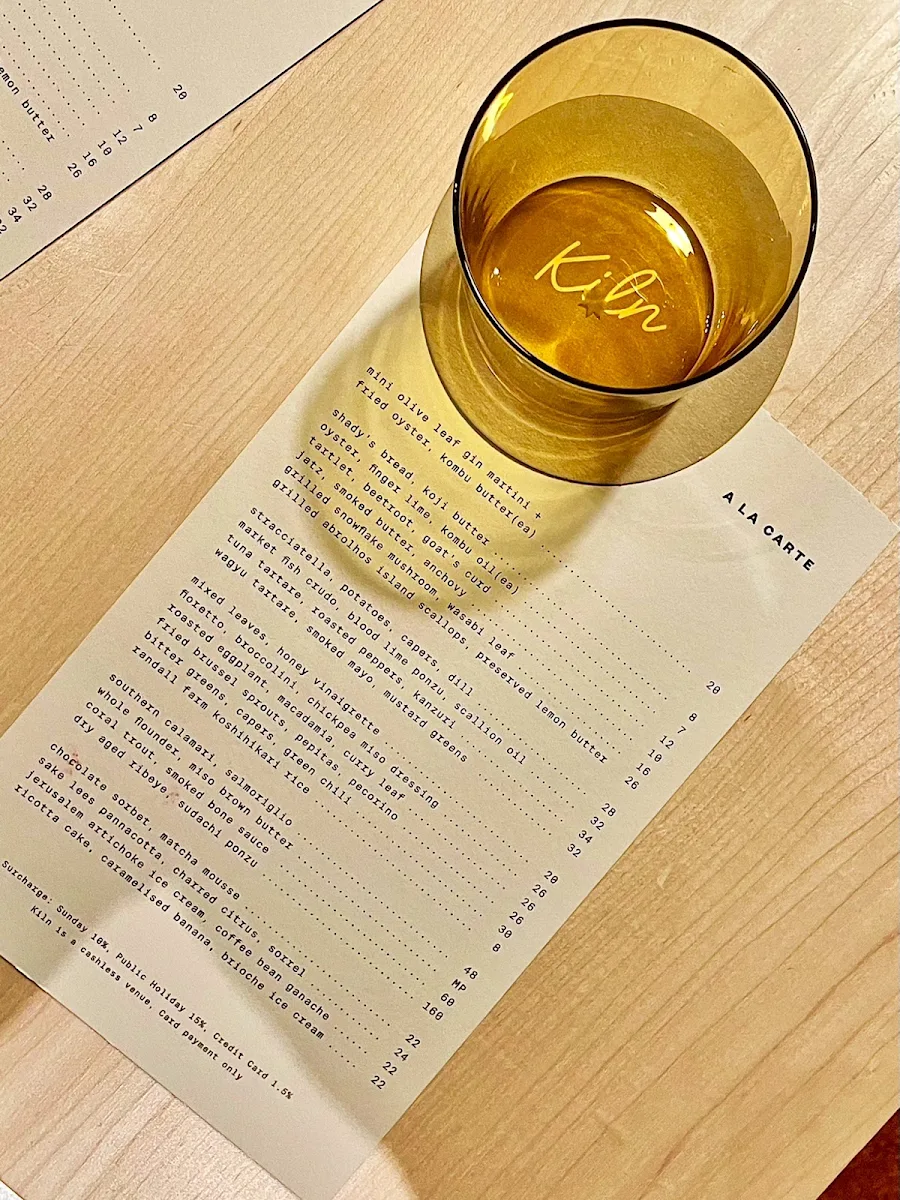 20
8
7
12
10
16
lemon butter 26
28
32
34
Kiln
A LA CARTE
mini olive leaf gin martini +
fried oyster, kombu butter(ea) 20
shady's bread, koji butter 8
oyster, finger lime, kombu oil(ea) 7
tartlet, beetroot, goat's curd 12
jatz, smoked butter, anchovy 10
grilled snowflake mushroom, wasabi leaf 16
grilled abrolhos island scallops, preserved lemon butter 26
stracciatella, potatoes, capers, dill 28
market fish crudo, blood lime ponzu, scallion oil 32
tuna tartare, roasted peppers, kanzuri 34
wagyu tartare, smoked mayo, mustard greens 32
mixed leaves, honey vinaigrette 20
fioretto, broccolini, chickpea miso dressing 26
roasted eggplant, macadamia, curry leaf 26
fried brussel sprouts, pepitas, pecorino 26
bitter greens, capers, green chili 30
randall farm koshihikari rice 8
southern calamari, salmoriglio 48
whole flounder, miso brown butter MP
coral trout, smoked bone sauce 60
dry aged ribeye, sudachi ponzu 160
chocolate sorbet, matcha mousse 22
sake lees pannacotta, charred citrus, sorrel 24
jerusalem artichoke ice cream, coffee bean ganache 22
ricotta cake, caramelised banana, brioche ice cream 22
Surcharge: Sunday 10%, Public Holiday 15%, Credit Card 1.5%
Kiln is a cashless venue, Card payment only